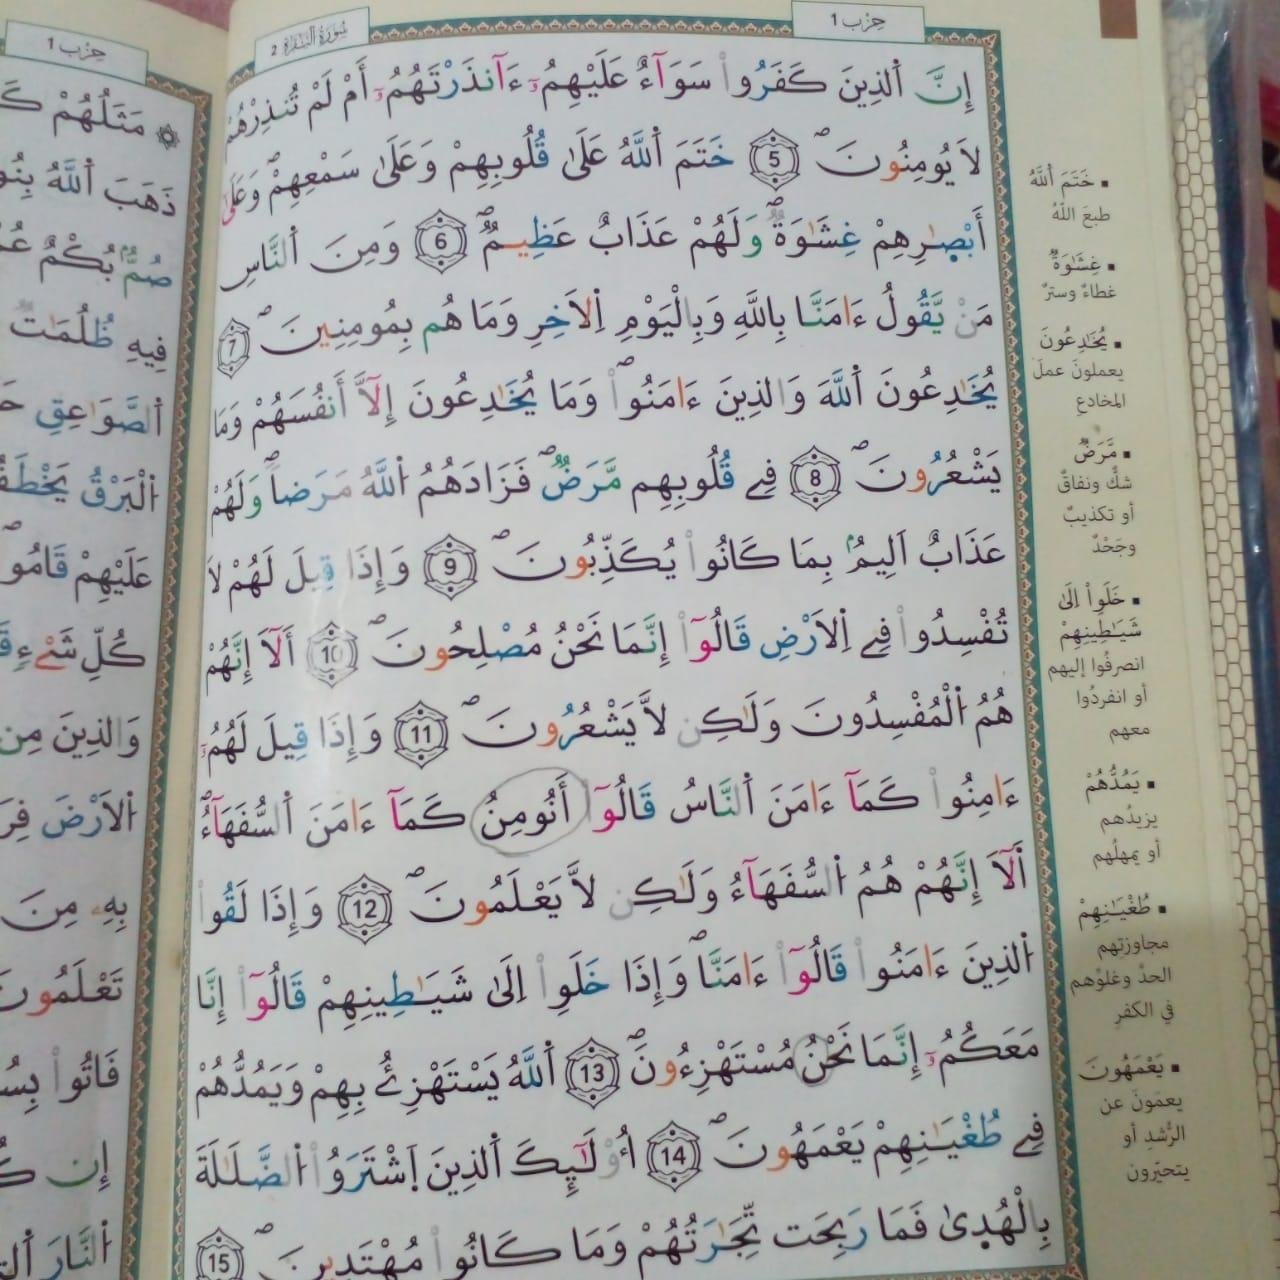 حِزْب 1
سُورَةُ الْبَقَرَةِ 2
إِنَّ اَ۬لذِينَ كَفَرُواْ سَوَآءٌ عَلَيْهِمُۥٓ ءَآنذَرْتَهُمُۥٓ أَمْ لَمْ تُنذِرْهُمْ
لَا يُومِنُونَۖ 5 خَتَمَ اَ۬للَّهُ عَلَىٰ قُلُوبِهِمْ وَعَلَىٰ سَمْعِهِمْۖ وَعَلَىٰ
أَبْصٰ۪رِهِمْ غِشَٰوَةٌۖ وَلَهُمْ عَذَابٌ عَظِيمٌۖ 6 وَمِنَ اَ۬لنَّاسِ
مَنْ يَّقُولُ ءَامَنَّا بِاللَّهِ وَبِالْيَوْمِ اِ۬لَاخِرِ وَمَا هُم بِمُومِنِينَۖ 7
يُخَٰدِعُونَ اَ۬للَّهَ وَالذِينَ ءَامَنُواْۖ وَمَا يُخَٰدِعُونَ إِلَّآ أَنفُسَهُمْ وَمَا
يَشْعُرُونَۖ 8 فِے قُلُوبِهِم مَّرَضٌۖ فَزَادَهُمُ اُ۬للَّهُ مَرَضاٗۖ وَلَهُمْ
عَذَابٌ اَلِيمُۢ بِمَا كَانُواْ يُكَذِّبُونَۖ 9 وَإِذَا قِيلَ لَهُمْ لَا
تُفْسِدُواْ فِے اِ۬لَارْضِ قَالُوٓاْ إِنَّمَا نَحْنُ مُصْلِحُونَۖ 10 أَلَآ إِنَّهُمْ
هُمُ اُ۬لْمُفْسِدُونَ وَلَٰكِن لَّا يَشْعُرُونَۖ 11 وَإِذَا قِيلَ لَهُمُۥٓ
ءَامِنُواْ كَمَآ ءَامَنَ اَ۬لنَّاسُ قَالُوٓاْ أَنُومِنُ كَمَآ ءَامَنَ اَ۬لسُّفَهَآءُۖ
أَلَآ إِنَّهُمْ هُمُ اُ۬لسُّفَهَآءُ وَلَٰكِن لَّا يَعْلَمُونَۖ 12 وَإِذَا لَقُواْ
اُ۬لذِينَ ءَامَنُواْ قَالُوٓاْ ءَامَنَّاۖ وَإِذَا خَلَوِاْ اِلَىٰ شَيَٰطِينِهِمْ قَالُوٓاْ إِنَّا
مَعَكُمُۥٓ إِنَّمَا نَحْنُ مُسْتَهْزِءُونَۖ 13 اَ۬للَّهُ يَسْتَهْزِئُ بِهِمْ وَيَمُدُّهُمْ
فِے طُغْيَٰنِهِمْ يَعْمَهُونَۖ 14 أُوْلَٰٓئِكَ اَ۬لذِينَ اَ۪شْتَرَوُاْ اُ۬لضَّلَٰلَةَ
بِالْهُد۪ىٰ فَمَا رَبِحَت تِّجَٰرَتُهُمْ وَمَا كَانُواْ مُهْتَدِينَۖ 15
▪ خَتَمَ اَ۬للَّهُ
طبعَ اللّهُ
▪ غِشَٰوَةٌۖ
غطاءٌ وسترٌ
▪ يُخَٰدِعُونَ
يعملونَ عملَ
المخادع
▪ مَّرَضٌ
شكٌّ ونفاقٌ
أو تكذيبٌ
وجَحْدٌ
▪ خَلَوِاْ اِلَىٰ
شَيَٰطِينِهِمْ
انصرفُوا إليهم
أو انفردُوا
معهم
▪ يَمُدُّهُمْ
يزيدُهم
أو يمهلُهم
▪ طُغْيَٰنِهِمْ
مجاوزتِهم
الحدَّ وغلوْهم
في الكفرِ
▪ يَعْمَهُونَ
يعمَونَ عن
الرُّشدِ أو
يتحيّرون
حِزْب 1
مَثَلُهُمْ
ذَهَبَ اَ۬للَّهُ
صُمُّۢ بُكْمٌ
فِيهِ ظُلُمَٰتٌ
اَ۬لصَّوَٰعِقِ
اَ۬لْبَرْقُ
عَلَيْهِمْ قَامُواْ
كُلِّ شَےْءٖ
وَالذِينَ مِن
اُ۬لَارْضَ
بِهِۦ مِنَ
تَعْلَمُونَ
فَاتُواْ
إِن
اَ۬لنَّارَ